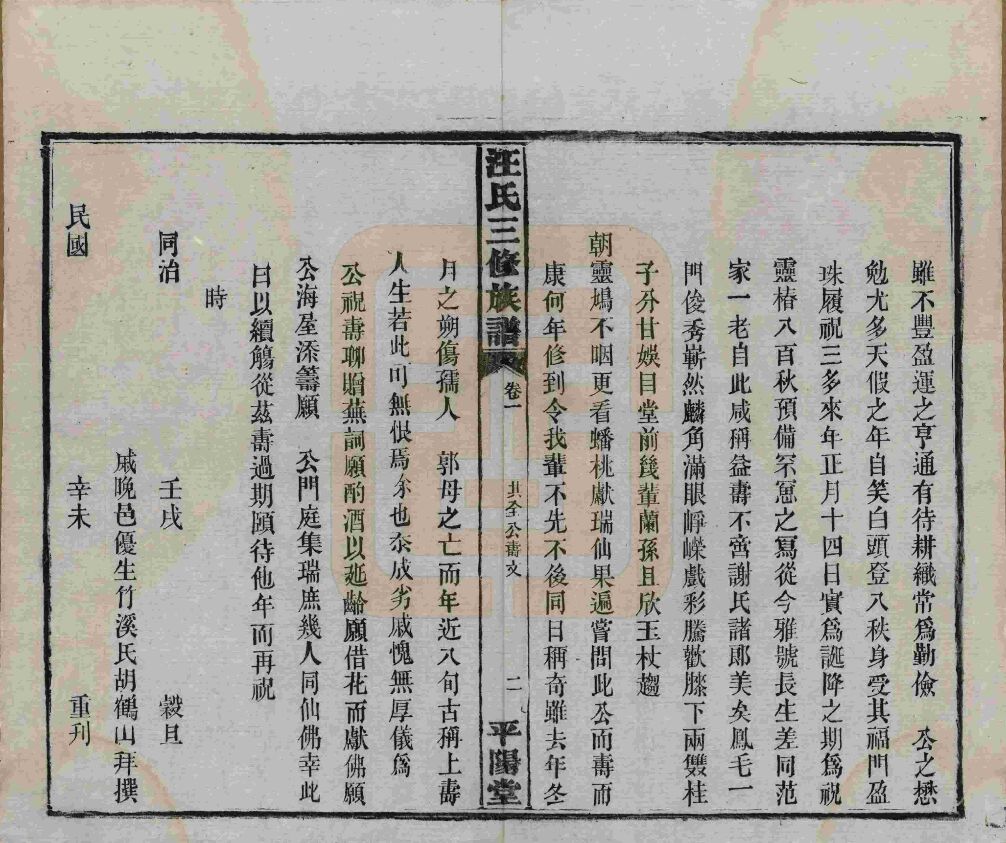 雖不豐盈運之亨通有待耕織常爲勤儉　公之懋
勉尤多天假之年自笑白頭登八秩身受其福門盈
珠履祝三多來年正月十四日實爲誕降之期爲祝
靈椿八百秋預備罙寃之冩從今雅號長生差同范
家一老自此咸稱益壽不啻謝氏諸郎美矣鳳毛一
門俊秀嶄然麟角滿眼崢嶸戲彩騰歡膝下兩雙桂
子分甘娛目堂前幾輩蘭孫且欣玉杖趨
朝靈鳩不咽更看蟠桃獻瑞仙果遍嘗問此公而壽而
康何年修到令我輩不先不後同日稱奇雖去年冬
汪氏三修族譜
卷一
其全公壽文
二
平陽堂
月之朔傷孺人　郭母之亡而年近八旬古稱上壽
人生若此可無恨焉尒也忝成劣戚愧無厚儀爲
公祝壽聊贈蕪詞願酌酒以延齡願借花而獻佛願
公海屋添籌願　公門庭集瑞庶幾人同仙佛幸此
日以續觴從茲壽過期頤待他年而再祝
時
同治　壬戌　穀旦
戚晚邑優生竹溪氏胡鶴山拜撰
民國　辛未　重刋